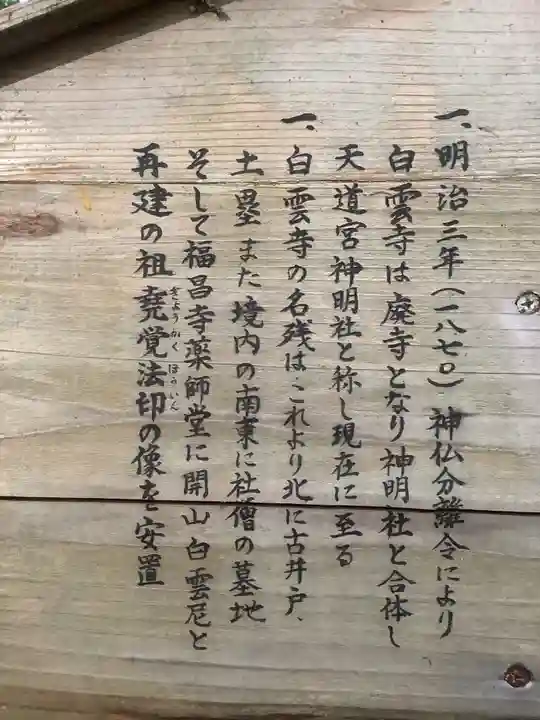 一、明治三年(一八七〇)神仏分離令により
白雲寺は廃寺となり神明社と合体し
天道宮神明社と称し現在に至る
一、白雲寺の名残はこれより北に古井戸、
土塁また境内の南東に社僧の墓地
そして福昌寺薬師堂に開山白雲尼と
再建の祖堯覚法印の像を安置
ぎょうかくほういん